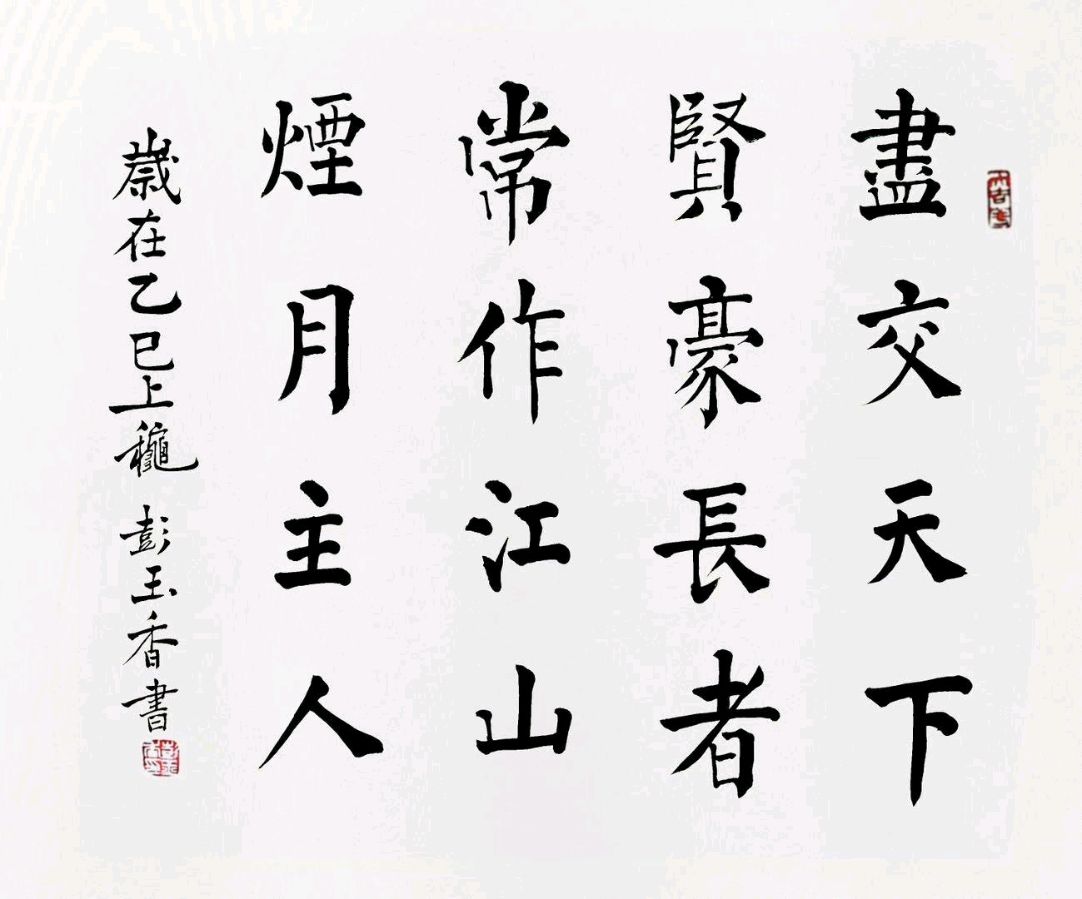 盡交天下
賢豪長者
常作江山
煙月主人
歲在乙巳上龝 彭玉香書